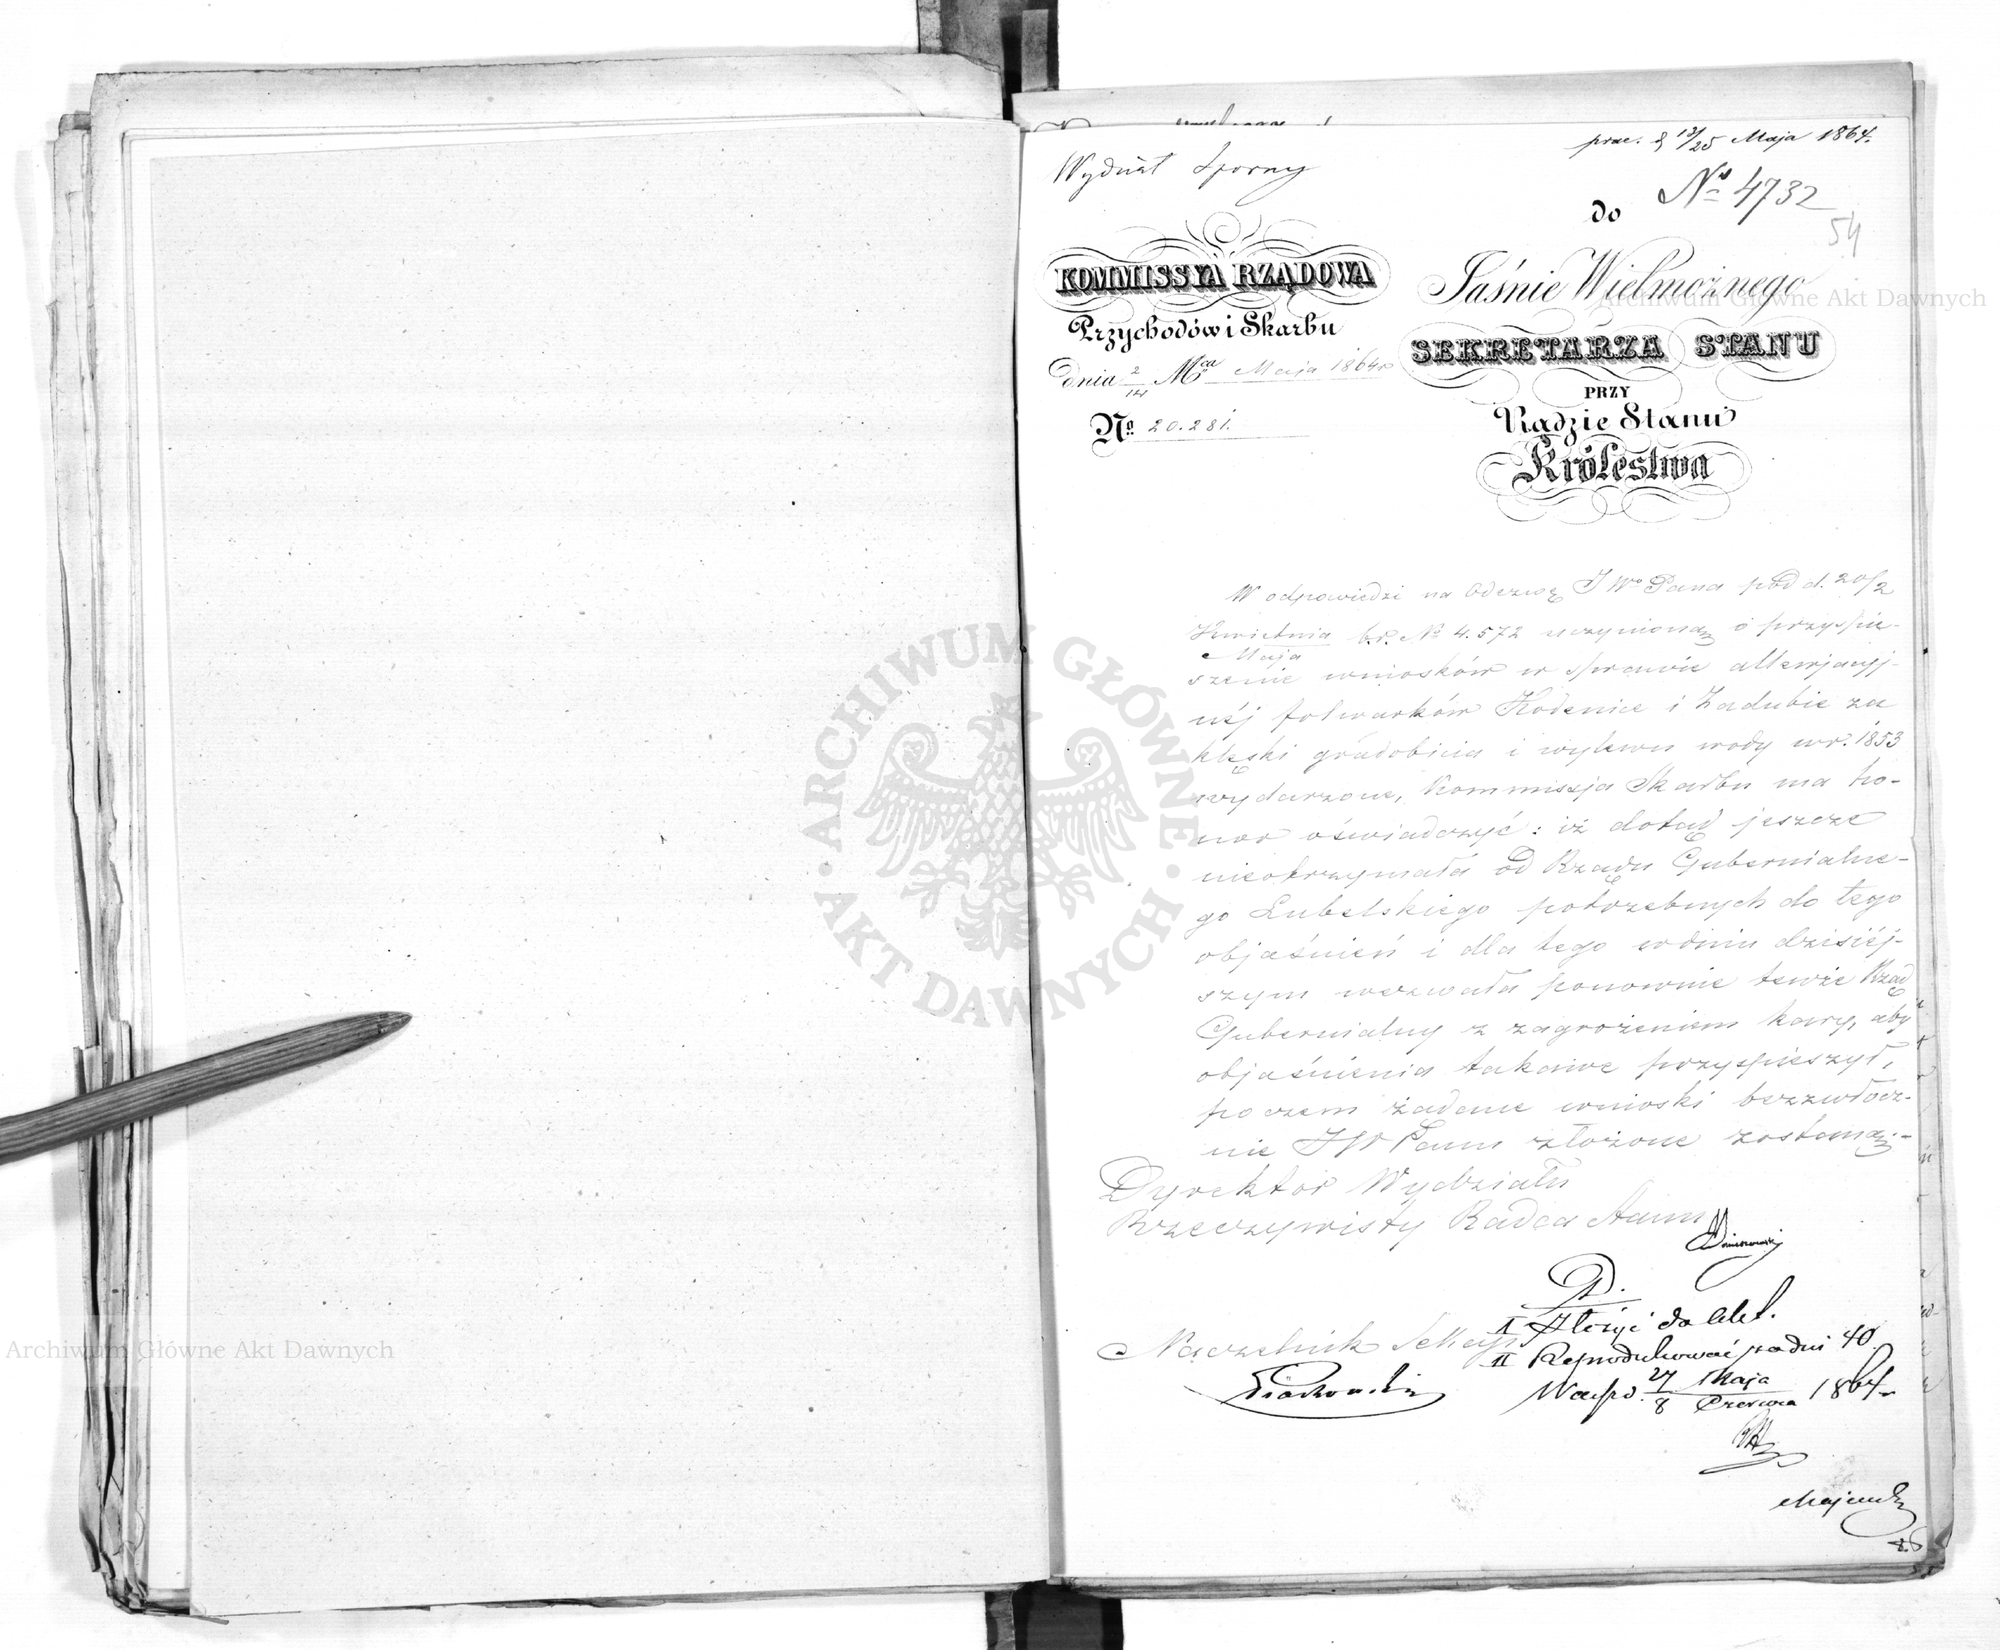 prae. d 13/25 Maja 1864.
Wydział Sporny
Nº 4732
54
KOMMISSYA RZĄDOWA
Przychodów i Skarbu
dnia 2/14 Mca Maja 1864 r
Nº 20.281.
do
Jaśnie Wielmożnego
SEKRETARZA STANU
PRZY
Radzie Stanu
Królestwa
W odpowiedzi na Odezwę JWo Pana pod d. 20/2
Kwietnia/Maja b.r. Nº 4.572 uczynioną o przyspie-
szenie wniosków w sprawie allewjacyj-
nej folwarków Kodenice i Zadubie za
klęski gradobicia i wylewu wody w r. 1853
wydarzone, Kommissja Skarbu ma ho-
nor oświadczyć: iż dotąd jeszcze
nieotrzymała od Rządu Gubernialne-
go Lubelskiego potrzebnych do tego
objaśnień i dla tego w dniu dzisiéj-
szym wezwała ponownie tenże Rząd
Gubernialny z zagrożeniem kary, aby
objaśnienia takowe przyspieszył,
poczem żądane wnioski bezzwłocz-
nie JW Panu złożone zostaną.-
Dyrektor Wydziału
Rzeczywisty Radca Stanu
D.
I Złożyć do Akt.
Naczelnik Sekcyi
II Reprodukować za dni 40
Warsz. d. 27 Maja/8 Czerwca 1864 r
Archiwum Główne Akt Dawnych
Archiwum Główne Akt Dawnych
ARCHIWUM GŁÓWNE · AKT DAWNYCH ·